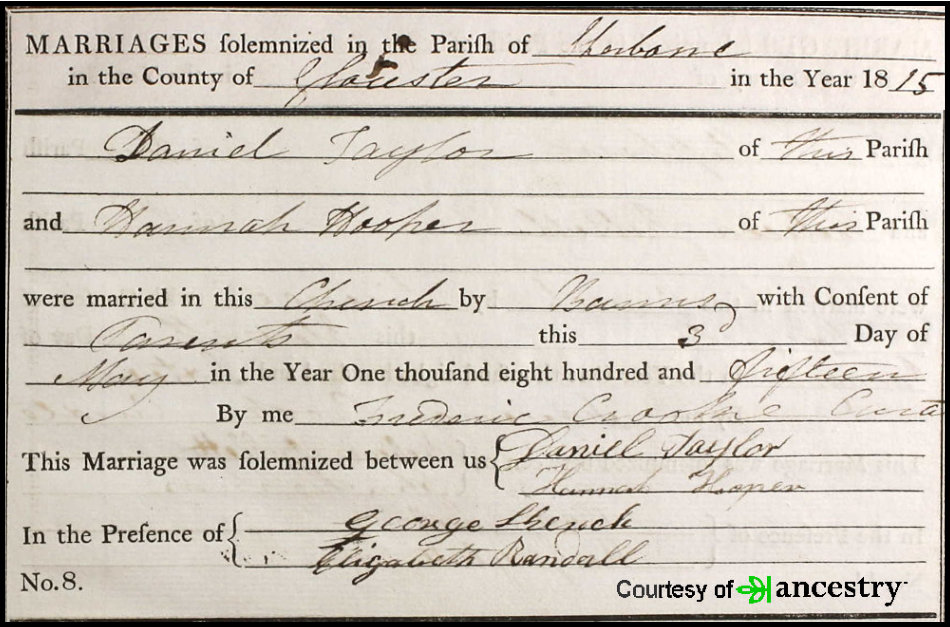 MARRIAGES ſolemnized in the Pariſh of Sherborne
in the County of Gloucester in the Year 1815
Daniel Taylor of this Pariſh
and Hannah Hooper of this Pariſh
were married in this Church by Banns with Conſent of
Parents this 3d Day of
May in the Year One thouſand eight hundred and fifteen
By me Frederic Curate
This Marriage was ſolemnized between us Daniel Taylor
Hannah Hooper
In the Preſence of George
Elizabeth Randall
No. 8.
Courtesy of ancestry